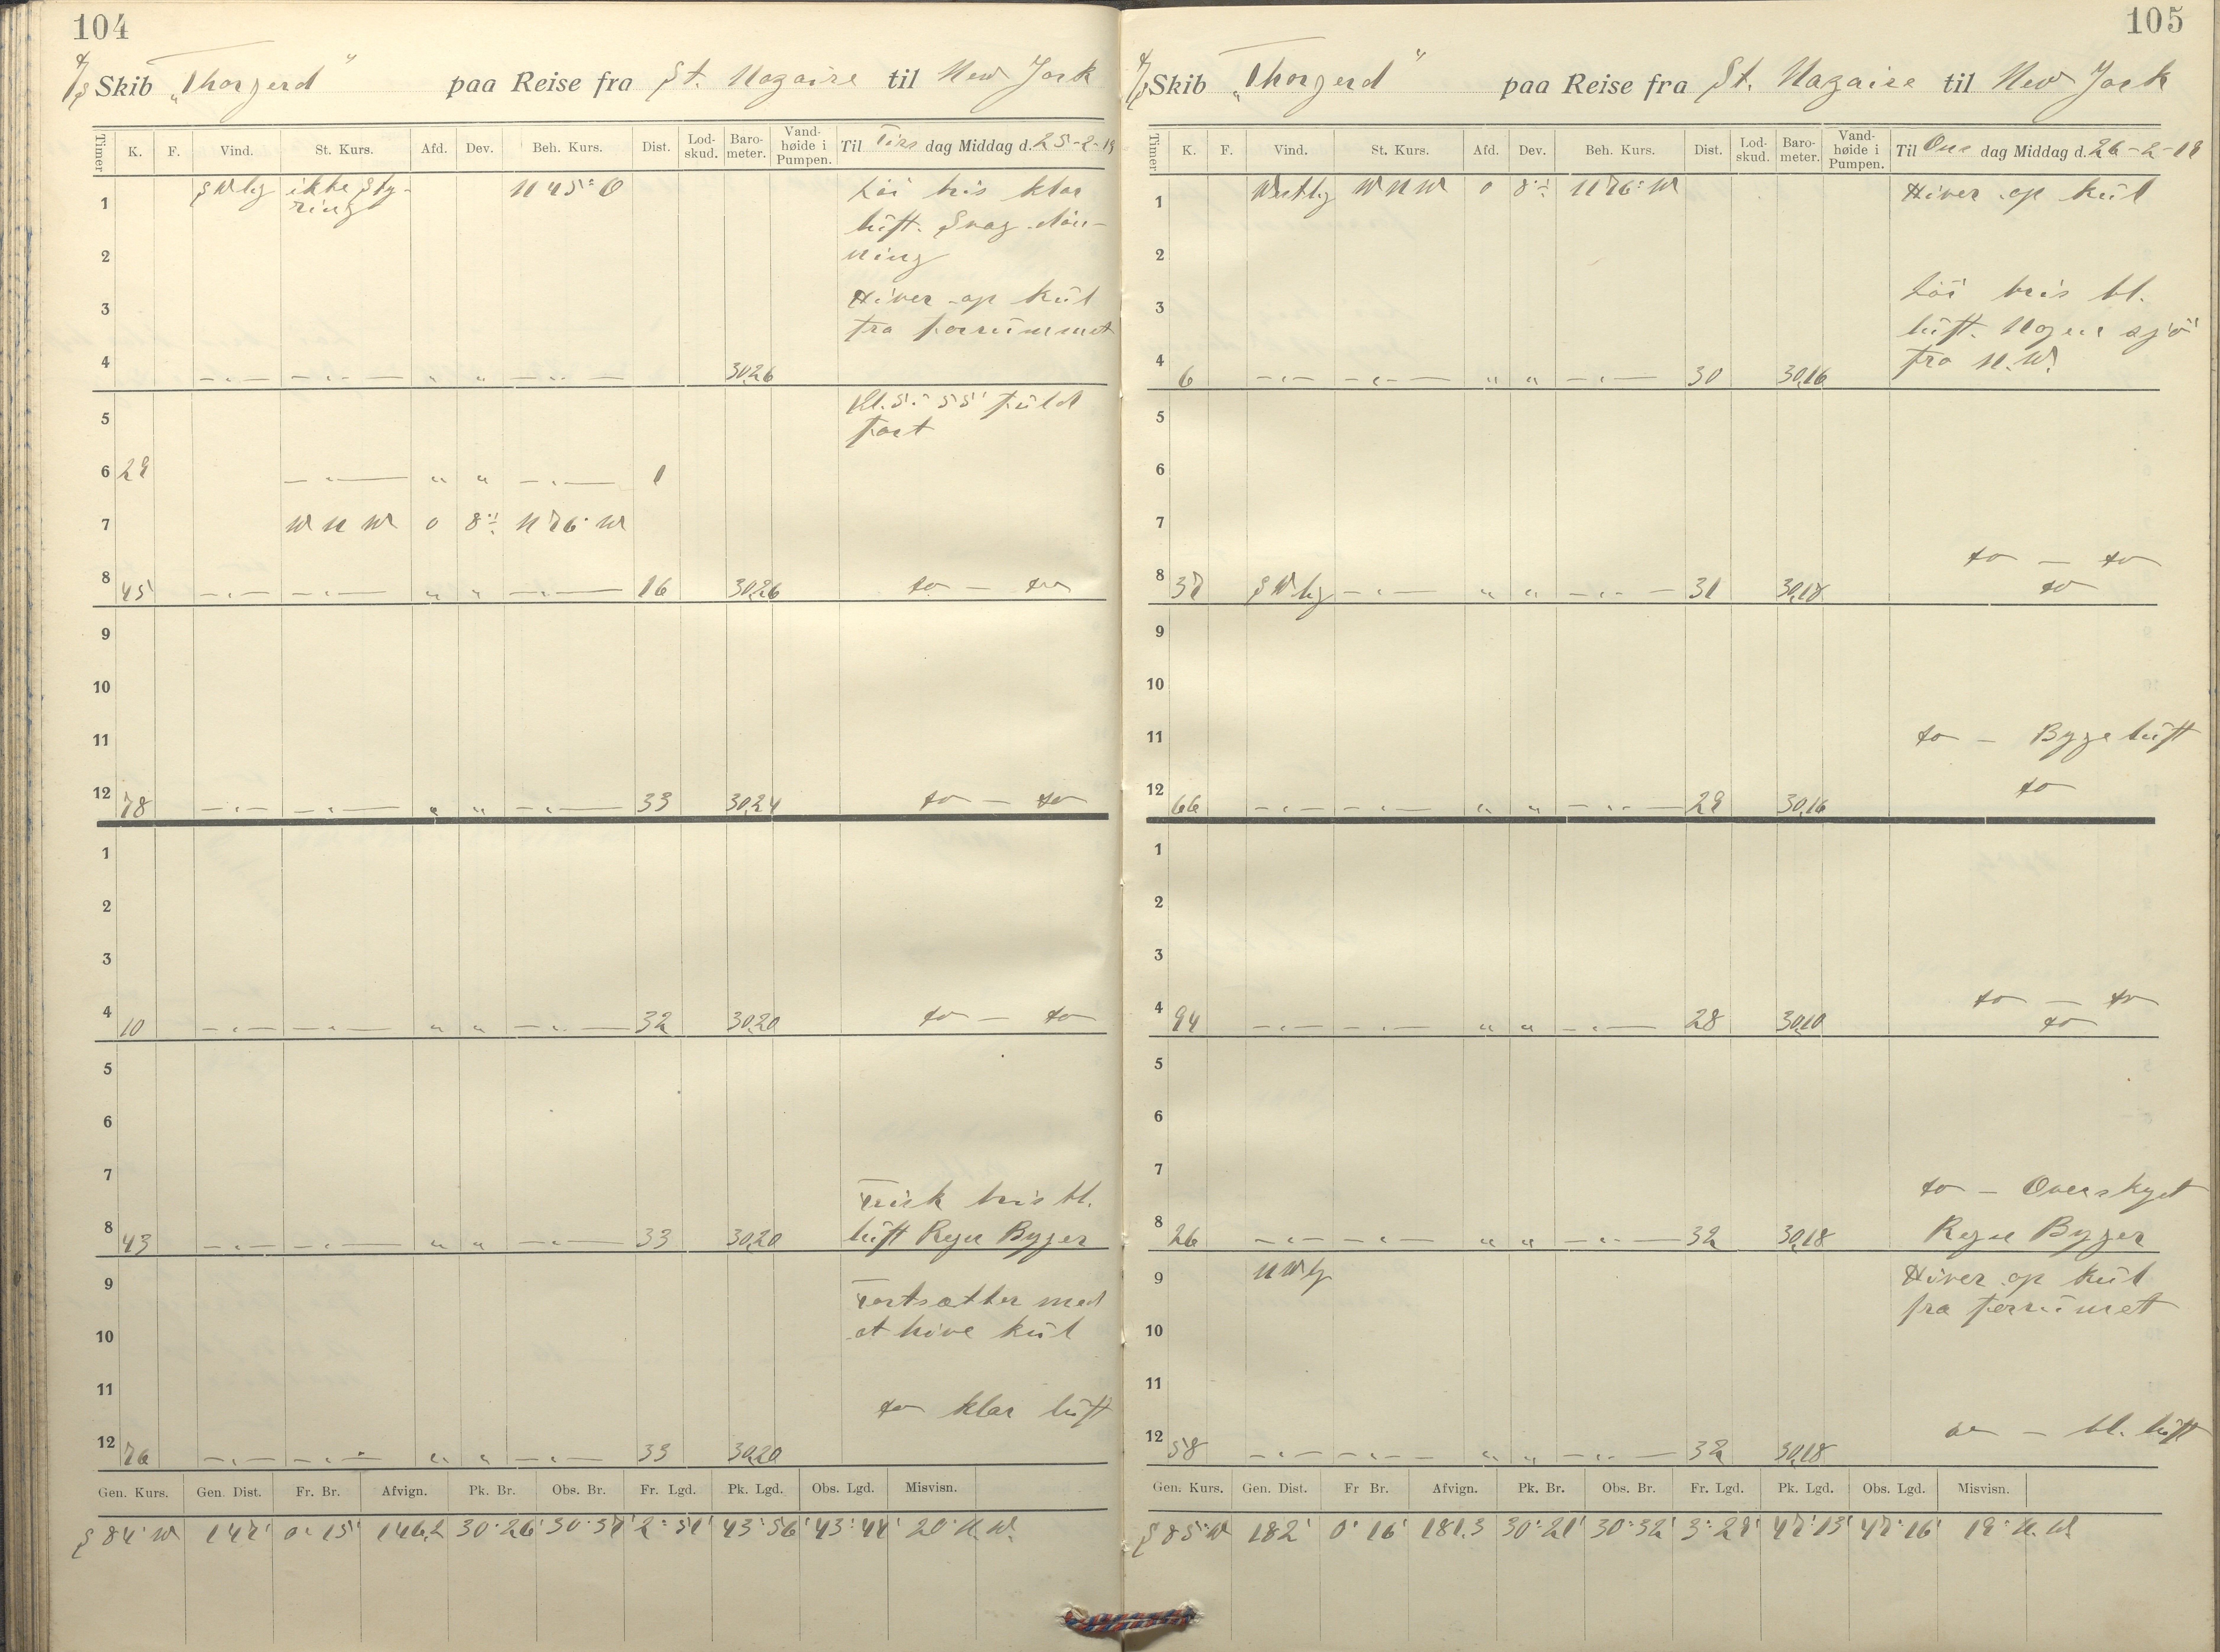 104
D/S Skib "Thorgerd" paa Reise fra St. Nazaire til New York
Timer K. F. Vind. St. Kurs. Afd. Dev. Beh. Kurs. Dist. Lod-skud. Baro-meter. Vand-høide i Pumpen. Til Tirs dag Middag d. 25-2-19
1 SWlig ikke Sty- N 45° O Löi bris klar
ring luft. Svag dön-
2 ning
3 Hiver op kul
fra forrummet
4 30,26
5 Kl. 5:55' fuld
fart
6 29 1
7 W N W 0 8° N 76° W
8 45 16 30,26 do — do
9
10
11
12 78 33 30,24 do — do
1
2
3
4 10 32 30,20 do — do
5
6
7 Frisk bris bl.
8 43 33 30,20 luft Regn Byger
9 Fortsætter med
10 at hive kul
11 do klar luft
12 76 33 30,20
Gen. Kurs. Gen. Dist. Fr. Br. Afvign. Pk. Br. Obs. Br. Fr. Lgd. Pk. Lgd. Obs. Lgd. Misvisn.
S 84° W 147' 0° 15' 146,2 30° 26' 30° 37' 2° 51' 43° 56' 43° 47' 20° N.W.
105
D/S Skib "Thorgerd" paa Reise fra St. Nazaire til New York
Timer K. F. Vind. St. Kurs. Afd. Dev. Beh. Kurs. Dist. Lod-skud. Baro-meter. Vand-høide i Pumpen. Til Ons dag Middag d. 26-2-19
1 Westlig W N W 0 8° N 76° W Hiver op kul
2
3 Löi bris bl.
luft. Nogen sjö
4 6 30 30,16 fra N.W.
5
6
7
do — do
8 37 SWlig 31 30,18 do
9
10
11 do — Byge luft
12 66 29 30,16 do
1
2
3
4 94 28 30,10 do — do
do
5
6
7 do — Overskyet
8 26 32 30,18 Regn Byger
9 NWlig Hiver op kul
fra forrumet
10
11
12 58 32 30,18 do — bl. luft
Gen. Kurs. Gen. Dist. Fr Br. Afvign. Pk. Br. Obs. Br. Fr. Lgd. Pk. Lgd. Obs. Lgd. Misvisn.
S 85° W 182' 0° 16' 181,3 30° 21' 30° 32' 3° 29' 47° 13' 47° 16' 19° N.W.